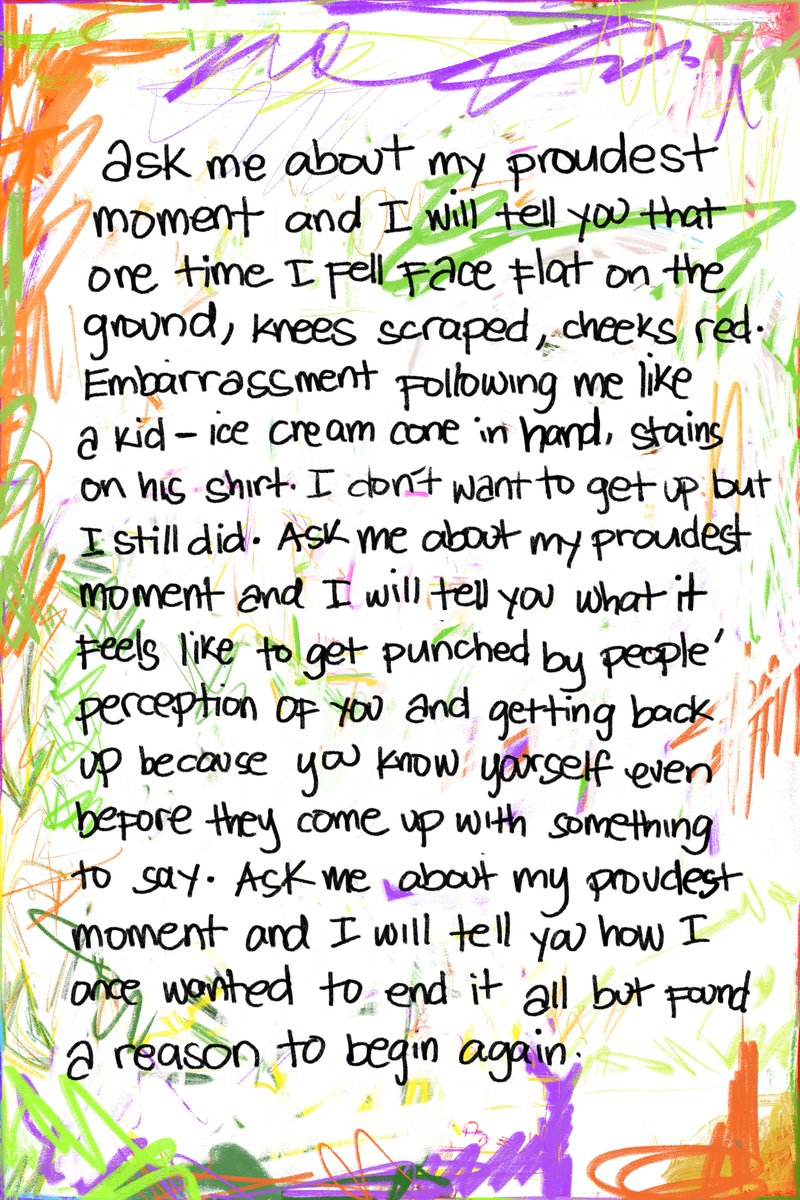 ask me about my proudest
moment and I will tell you that
one time I fell face flat on the
ground, knees scraped, cheeks red.
Embarrassment following me like
a kid - ice cream cone in hand, stains
on his shirt. I don't want to get up but
I still did. Ask me about my proudest
moment and I will tell you what it
feels like to get punched by people'
perception of you and getting back
up because you know yourself even
before they come up with something
to say. Ask me about my proudest
moment and I will tell you how I
once wanted to end it all but found
a reason to begin again.